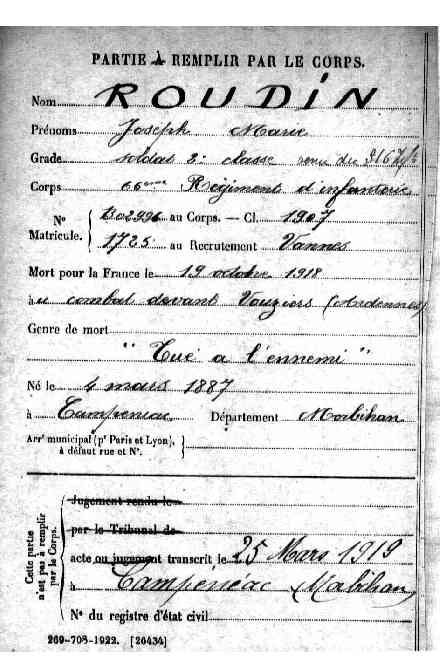 PARTIE À REMPLIR PAR LE CORPS.
Nom ROUDIN
Prénoms Joseph Marie
Grade soldat 2e classe venu du
Corps 66ème Régiment d'infanterie
N° Matricule. { au Corps. — Cl. 1907
1725 au Recrutement Vannes
Mort pour la France le 19 octobre 1918
à u combat devant Vouziers (Ardennes)
Genre de mort
"Tué a l'ennemi"
Né le 4 mars 1887
à Campénéac Département Morbihan
Arrt municipal (pr Paris et Lyon), à défaut rue et N°. }
Cette partie n'est pas à remplir par le Corps.
Jugement rendu le
par le Tribunal de
acte ou jugement transcrit le 25 Mars 1919
à Campénéac Mobihan
N° du registre d'état civil
269-708-1922. [26434]